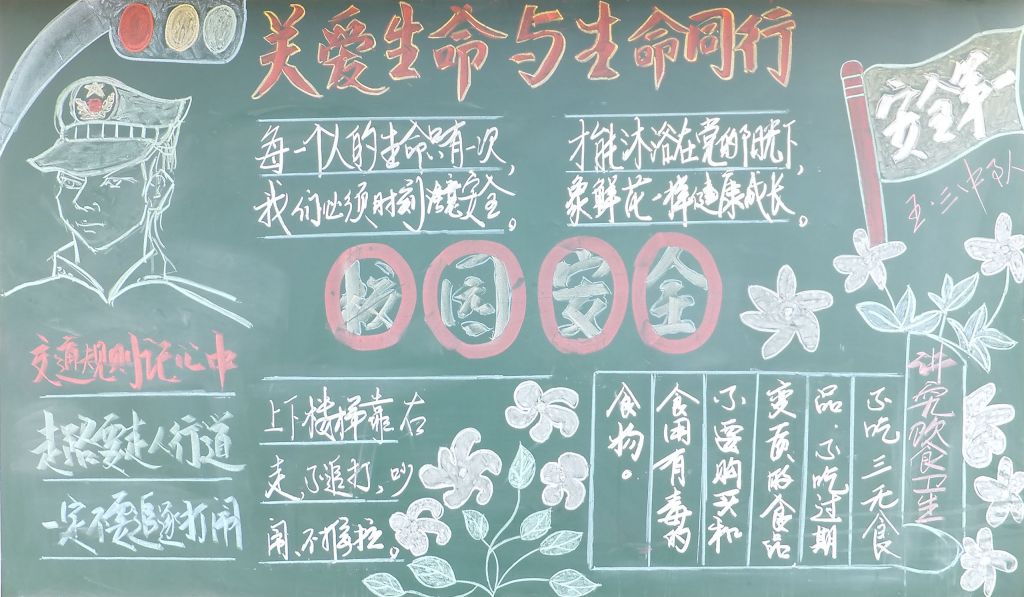 关爱生命与生命同行
安全第一
五·三中队
每一个人的生命只有一次，
我们必须时刻注意安全。
才能沐浴在党的阳光下，
象鲜花一样健康成长。
校园安全
交通规则记心中
走路要走人行道
一定不要追逐打闹
上下楼梯靠右
走，不追打，吵
闹、不推拉。
讲究饮食卫生
不吃三无食
品，不吃过期
变质的食品
不要购买和
食用有毒的
食物。